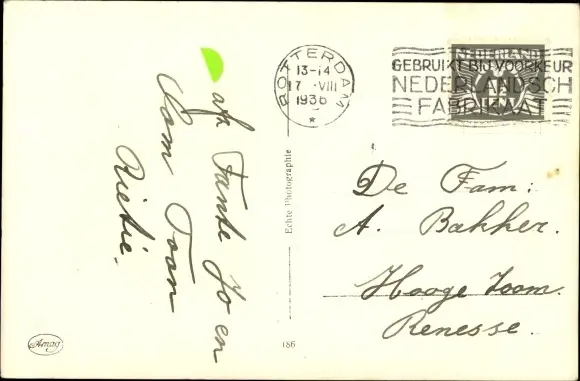 afz. Tante Jo en
Oom Toon
Rietie.
Echte Photographie
186
ROTTERDAM
13-14
17 VIII
1936
GEBRUIKT BIJ VOORKEUR
NEDERLANDSCH
FABRIKAAT
NEDERLAND
De Fam:
A. Bakker.
Hooge Zoom.
Renesse.